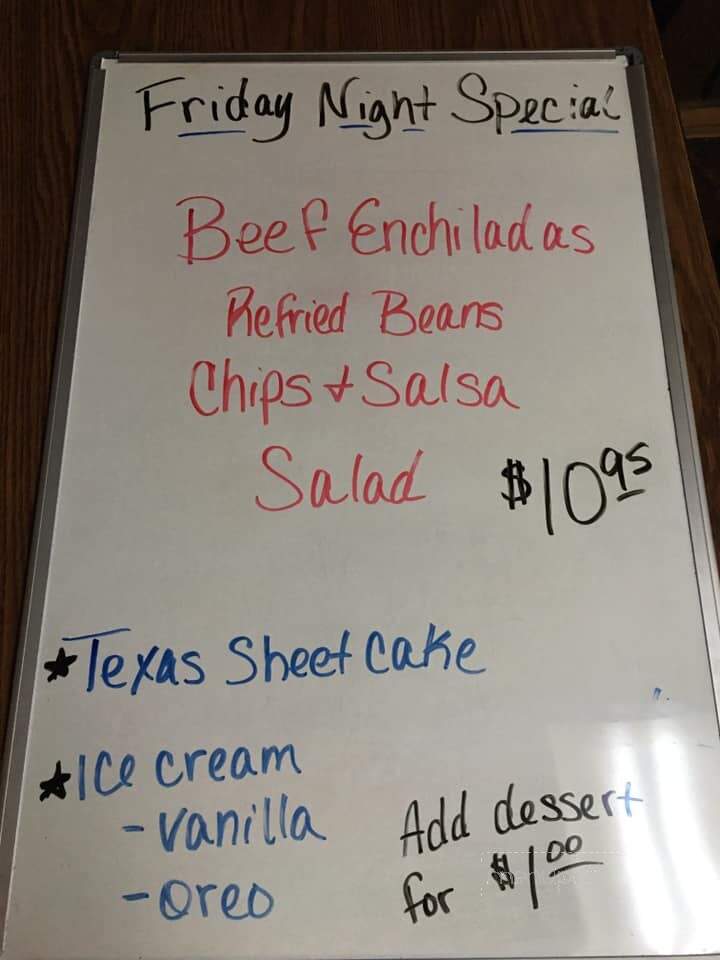 Friday Night Special
Beef Enchiladas
Refried Beans
Chips & Salsa
Salad $10.95
★Texas Sheet Cake
★Ice cream
-vanilla
-oreo
Add dessert
for $1.00